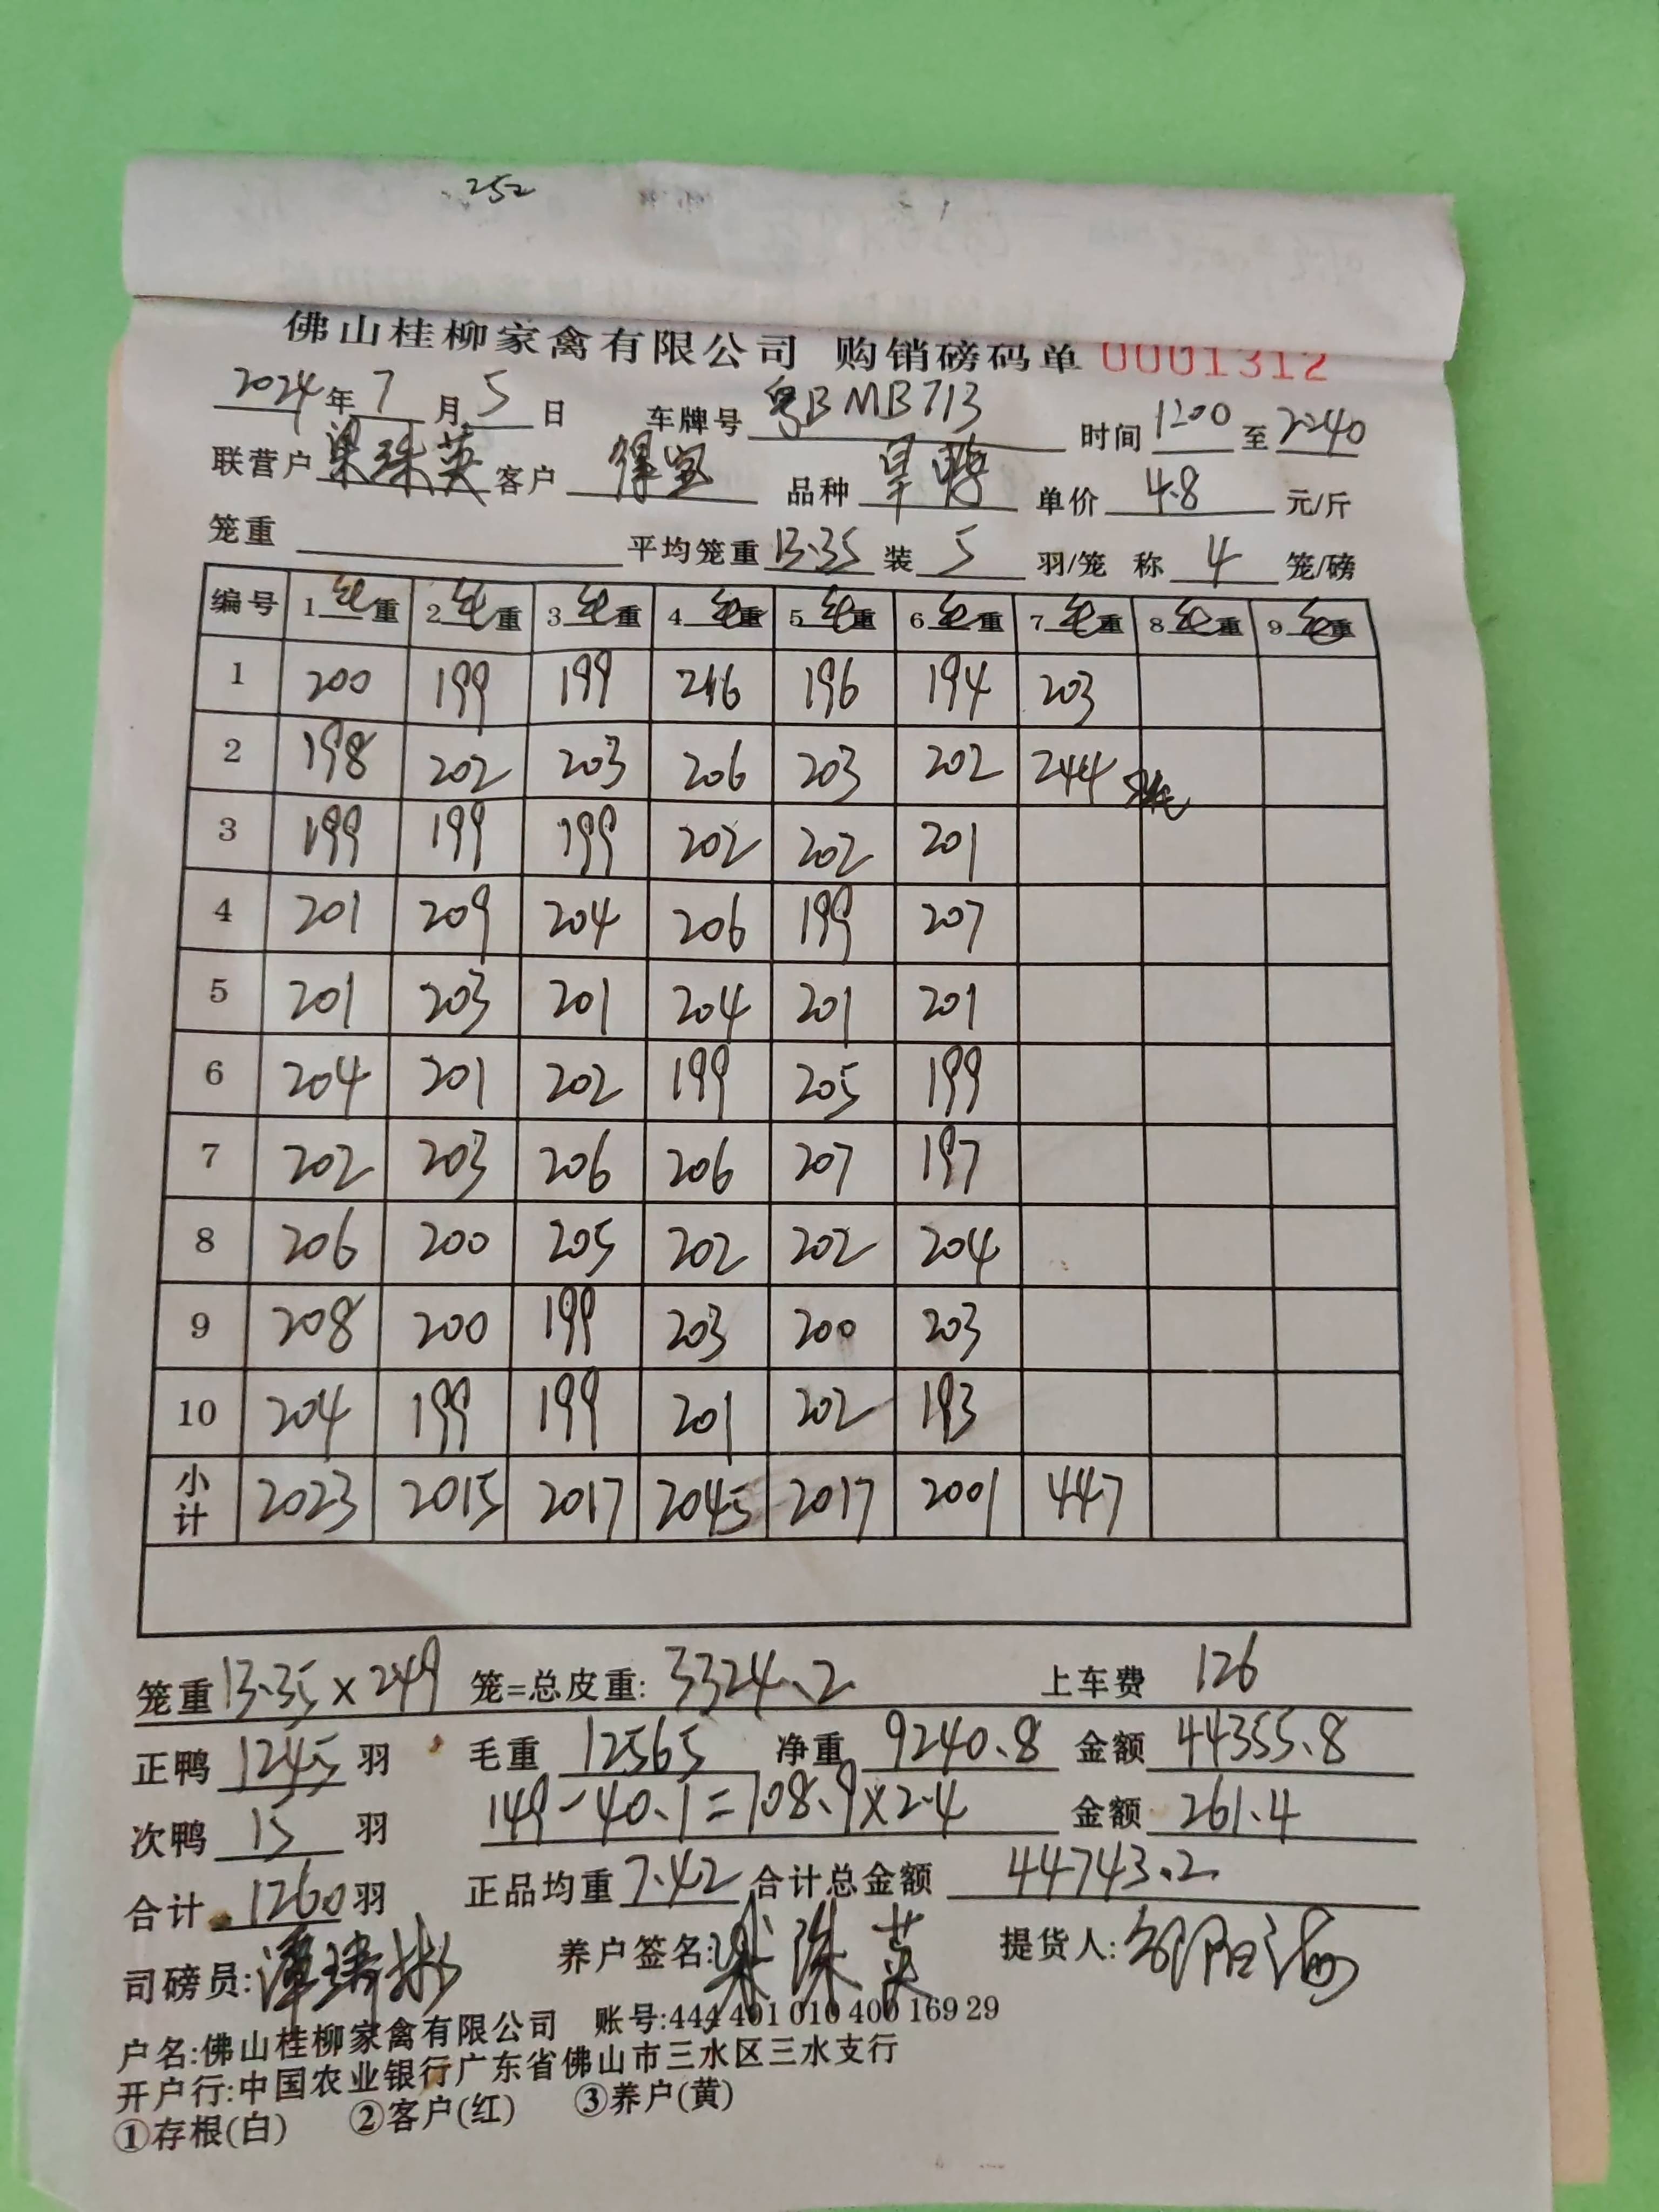 252
佛山桂柳家禽有限公司 购销磅码单 0001312
2024年7月5日 车牌号 粤BMB713 时间 1200 至 2240
联营户 梁珠英 客户 得宝 品种 旱鸭 单价 4.8 元/斤
笼重 平均笼重 13.35 装 5 羽/笼 称 4 笼/磅
编号 1 毛重 2 毛重 3 毛重 4 毛重 5 毛重 6 毛重 7 毛重 8 毛重 9 毛重
1 200 199 199 216 196 194 203
2 198 202 203 206 203 202 244
3 199 199 199 202 202 201
4 201 209 204 206 199 207
5 201 203 201 204 201 201
6 204 201 202 199 205 199
7 202 203 206 206 207 197
8 206 200 205 202 202 204
9 208 200 199 203 200 203
10 204 199 199 201 202 193
小计 2023 2015 2017 2045 2017 2001 447
笼重 13.35 x 249 笼=总皮重: 3324.2 上车费 126
正鸭 1245 羽 毛重 12565 净重 9240.8 金额 44355.8
次鸭 15 羽 149-40.1=108.9x2.4 金额 261.4
合计 1260 羽 正品均重 7.42 合计总金额 44743.2
司磅员: 养户签名: 梁珠英 提货人:
户名:佛山桂柳家禽有限公司 账号:444 401 010 400 169 29
开户行:中国农业银行广东省佛山市三水区三水支行
①存根(白) ②客户(红) ③养户(黄)